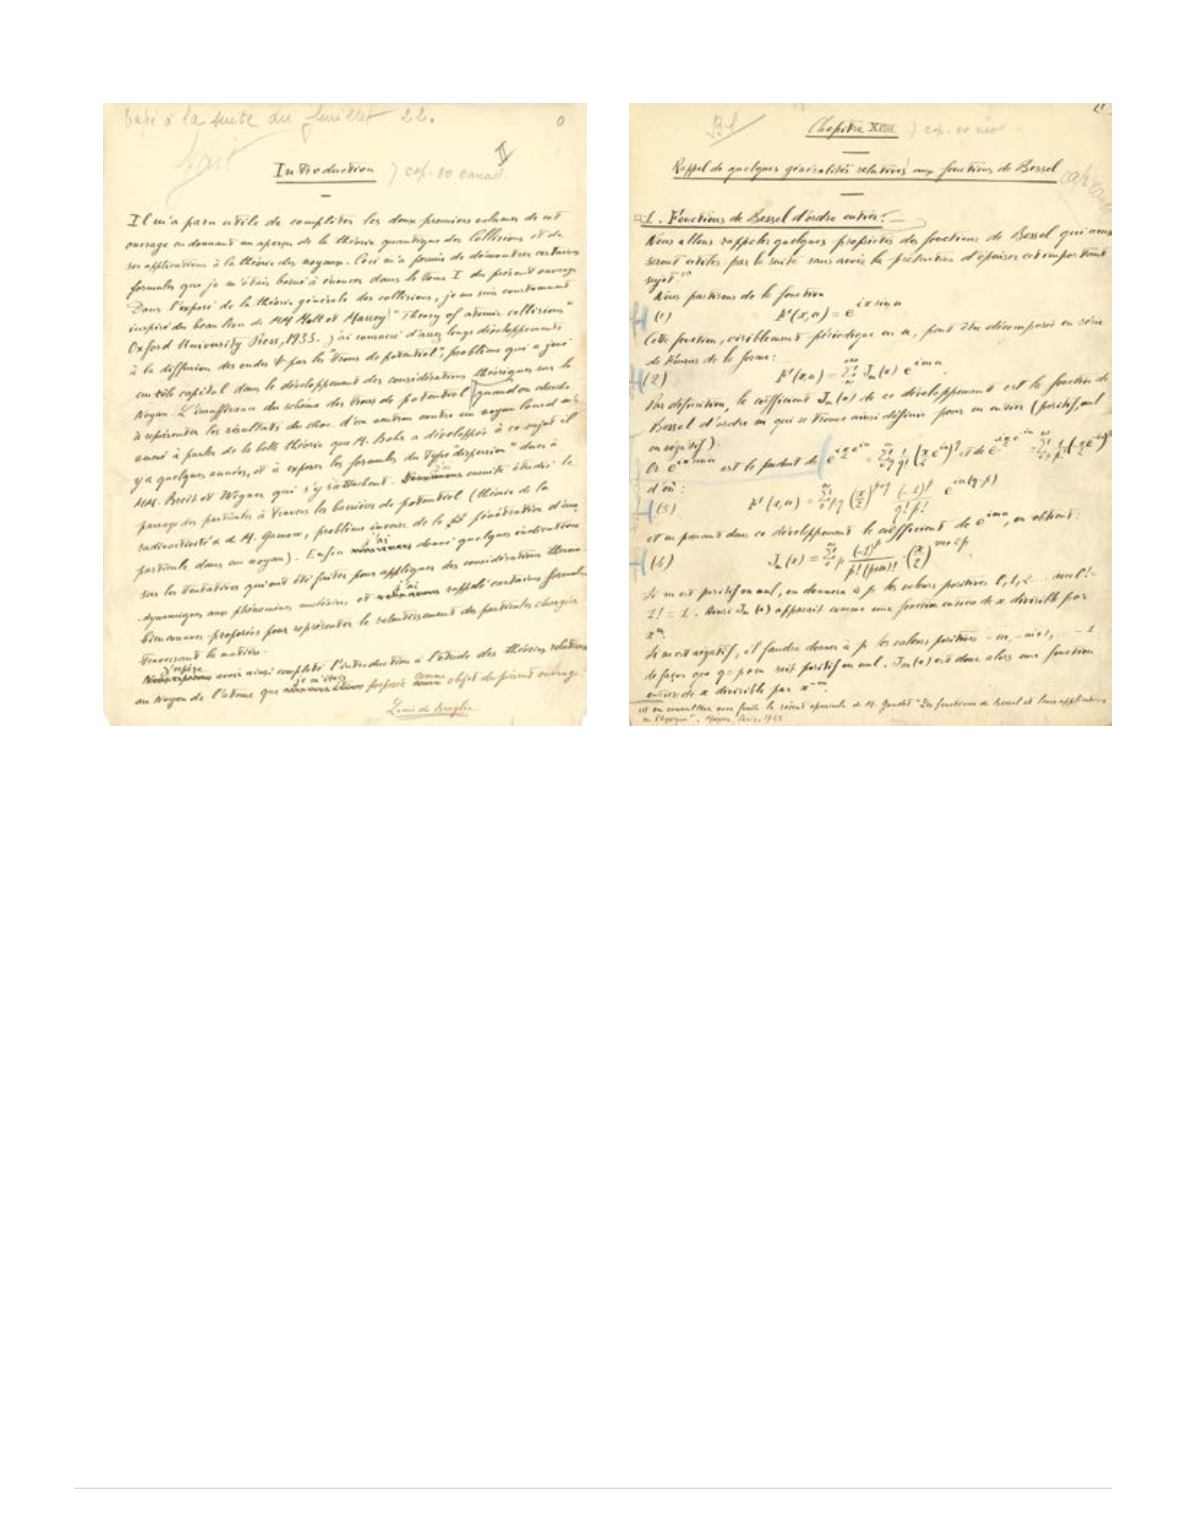 à la suite du feuillet 22.
0
II
Introduction ) cap. 10
Il m'a paru utile de compléter les deux premiers volumes de cet
ouvrage en donnant un aperçu de la théorie quantique des Collisions et de
ses applications à la théorie des noyaux. Ceci m'a permis de démontrer certaines
formules que je m'étais borné à énoncer dans le tome I du présent ouvrage
Dans l'exposé de la théorie générale des collisions, je me suis constamment
inspiré du beau livre de MM Mott et Massey "Theory of atomic collisions"
Oxford University Press, 1933. J'ai consacré d'assez longs développements
à la diffusion des ondes Ψ par les "trous de potentiel", problème qui a joué
un rôle capital dans le développement des considérations théoriques sur le
Noyau. L'insuffisance du schéma des trous de potentiel quand on
à représenter les résultats du choc d'un neutron contre un noyau lourd m'a
amené à parler de la belle théorie que M. Bohr a développée à ce sujet il
y a quelques années, et à exposer les formules du type "dispersion" dues à
MM. Breit et Wigner qui s'y rattachent. J'ai ensuite étudié le
passage des particules à travers les barrières de potentiel (théorie de la
radioactivité α de M. Gamow, problème inverse de la pénétration d'une
particule dans un noyau). Enfin j'ai donné quelques indications
sur les tentatives qui ont été faites pour appliquer des considérations thermo
-dynamiques aux phénomènes nucléaires, et j'ai rappelé certaines formules
bien connues proposées pour représenter le ralentissement des particules chargées
traversant la matière.
J'espère avoir ainsi complété l'introduction à l'étude des théories relatives
au Noyau de l'atome que je m'étais proposée comme objet du présent ouvrage.
Louis de Broglie
Chapitre XIII ) cap. 10
Rappel de quelques généralités relatives aux fonctions de Bessel
1. Fonctions de Bessel d'ordre entier.
Nous allons rappeler quelques propriétés des fonctions de Bessel qui nous
seront utiles par la suite sans avoir la prétention d'épuiser cet important
sujet.
Nous partirons de la fonction
(1) F(x,α) = e^{ix sin α}
Cette fonction, visiblement périodique en α, peut être décomposée en série
de Fourier de la forme:
(2) F(x,α) = Σ Jm(x) e^{imα}
Par définition, le coefficient Jm(x) de ce développement est la fonction de
Bessel d'ordre m qui se trouve ainsi définie pour m entier (positif, nul
ou négatif).
Or est le produit de
d'où:
F(x,α) = Σ pq (x/2)^{p+q} (-1)^p / q! p! e^{iα(q-p)}
et en prenant dans ce développement le coefficient de e^{imα}, on obtient:
(4) Jm(x) = Σ p (-1)^p / p!(p+m)! · (x/2)^{m+2p}
Si m est positif ou nul, on donnera à p les valeurs positives 0, 1, 2 ... avec 0! =
1! = 1. Ainsi Jm(x) apparaît comme une fonction entière de x divisible par
x^m.
Si m est négatif, il faudra donner à p les valeurs positives -m, -m+1, ...
de façon que q = p+m soit positif ou nul. Jm(x) est donc alors une fonction
entière de x divisible par x^{-m}.
on consultera avec fruit le récent opuscule de M. "Les fonctions de Bessel et leurs applications
en Physique", Paris,